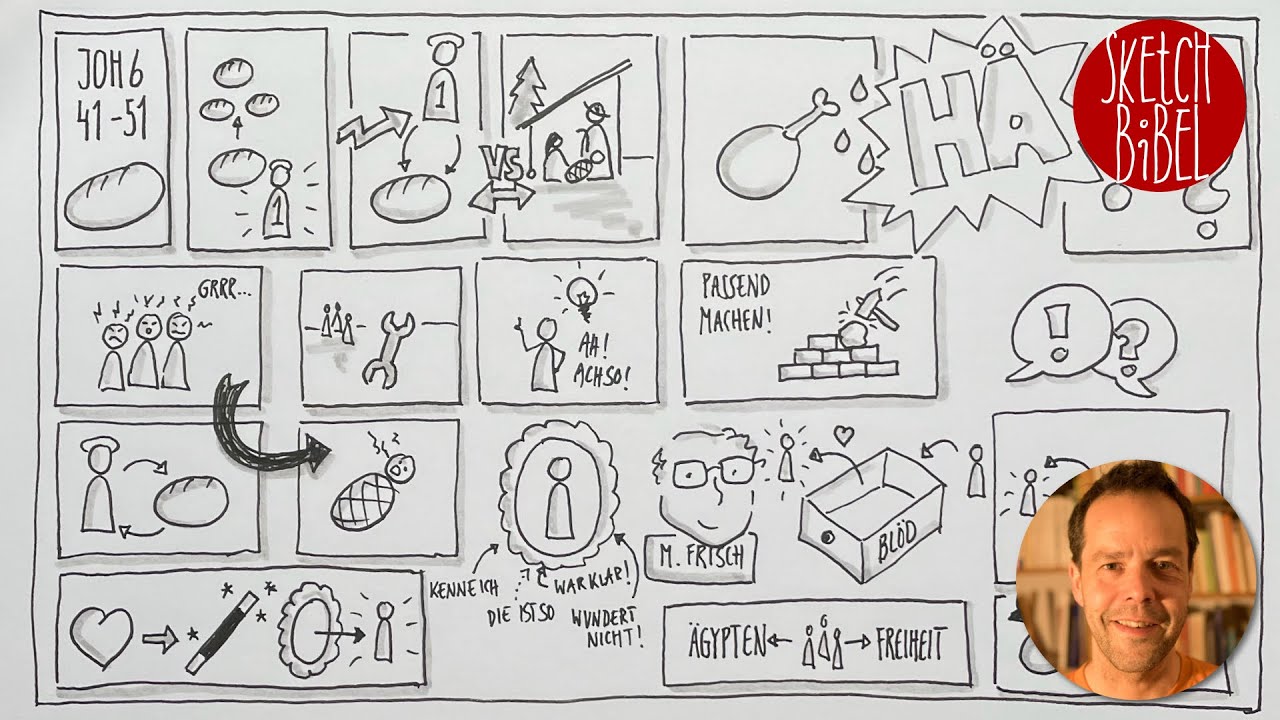 JOH 6
41-51
1
1
VS.
HÄ
SKETCH
BIBEL
GRRR...
AH!
ACHSO!
PASSEND
MACHEN!
!
?
M. FRISCH
BLÖD
KENNE ICH
DIE IST SO
WAR KLAR!
WUNDERT
NICHT!
ÄGYPTEN
FREIHEIT